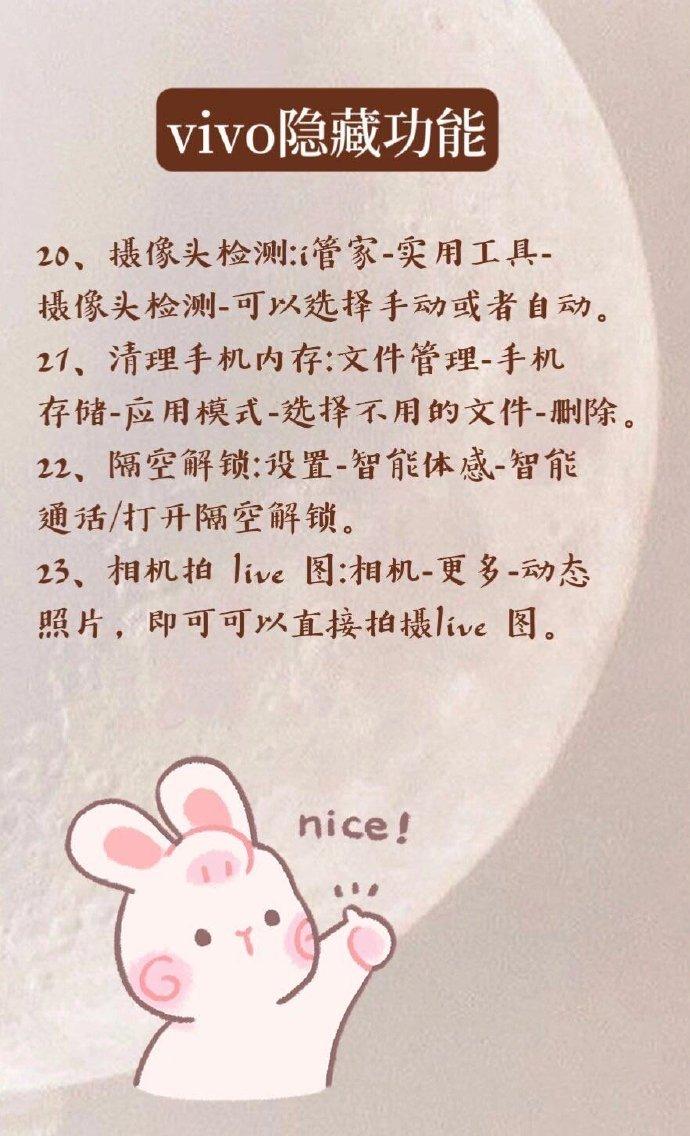 vivo隐藏功能
20、摄像头检测:i管家-实用工具-
摄像头检测-可以选择手动或者自动。
21、清理手机内存:文件管理-手机
存储-应用模式-选择不用的文件-删除。
22、隔空解锁:设置-智能体感-智能
通话/打开隔空解锁。
23、相机拍 live 图:相机-更多-动态
照片，即可可以直接拍摄live 图。
nice!